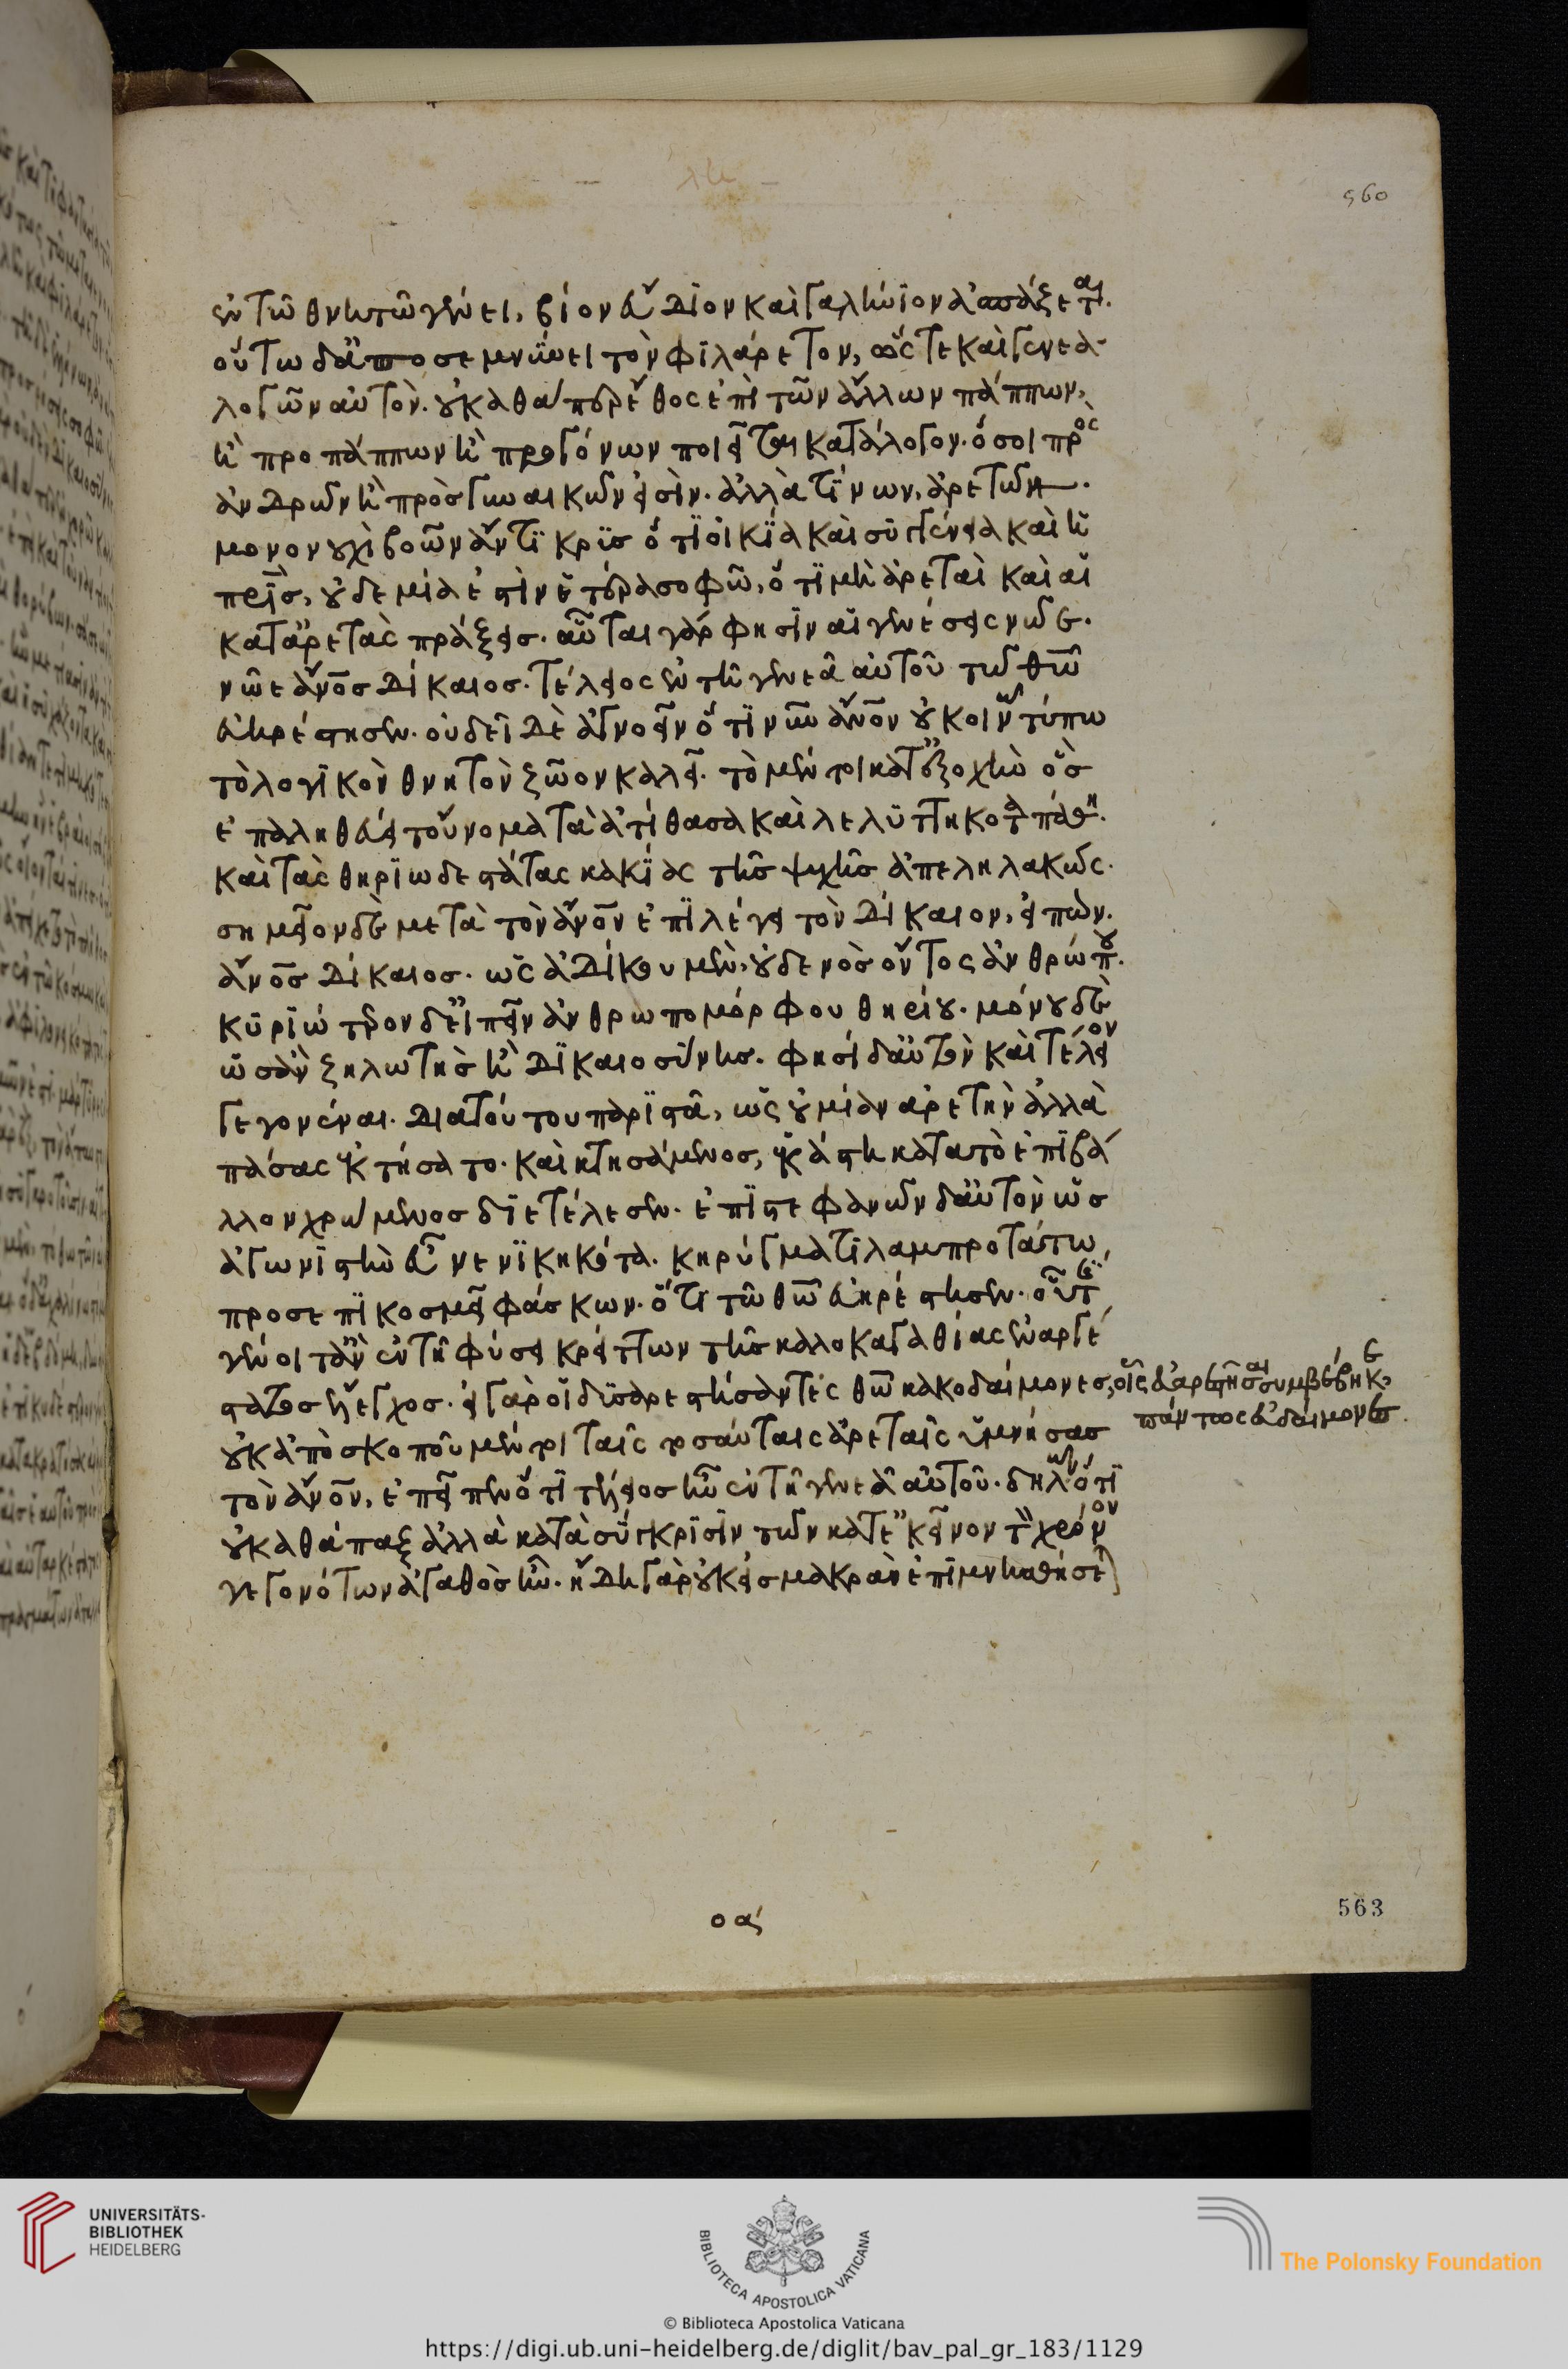 560
ἐν τῷ θνητῷ γένει, βίον εὔδιον καὶ γαλήνιον ἀσπάζεται.
οὕτω δ' ἀποσεμνύνει τὸν φιλάρετον, ὥστε καὶ γενεα
λογῶν αὐτόν. οὐ καθάπερ ἔθος ἐπὶ τῶν ἄλλων πάππων,
ἢ προπάππων ἢ προγόνων ποιεῖται κατάλογον. ὅσοι πρὸς
ἀνδρῶν ἢ πρὸς γυναικῶν εἰσὶν. ἀλλά τινων, ἀρετῶν.
μονονουχὶ βοῶν ἄντικρυς ὅτι οἰκία καὶ συγγένεια καὶ ἡ
πρὶς, οὐδεμία ἐστὶν ἑτέρα σοφῷ, ὅτι μὴ ἀρεταὶ καὶ αἱ
κατ' ἀρετὰς πράξεις. αὗται γάρ φησιν αἱ γενέσεις νῶε.
νῶε ἄνος δίκαιος. τέλειος ἐν τῇ γενεᾷ αὐτοῦ τῷ θῶ
εὐηρέστησεν. οὐ δεῖ δὲ ἀγνοεῖν ὅτι νῦν ἄνον οὐ κοινῶ τύπω
τὸ λογικὸν θνητὸν ζῶον καλεῖ. τὸ μέντοι κατ' ἐξοχὴν ὃς
ἐπαληθεύει τοὔνομα τὰ ἀτίθασα καὶ λελυττηκότα πάθη.
καὶ τὰς θηριωδεστάτας κακίας τῆς ψυχῆς ἀπεληλακώς.
σημεῖον δὲ μετὰ τὸν ἄνον ἐπιλέγει τὸν δίκαιον, εἰπών.
ἄνος δίκαιος. ὡς ἀδίκου μὲν, οὐδενὸς ὄντος ἀνθρώπου.
κυριώτερον δ' εἰπεῖν ἀνθρωπομόρφου θηρίου. μόνου δὲ
ὃς ἂν ζηλωτὴς ἢ δικαιοσύνης. φησί δ' αὐτὸν καὶ τέλειον
γεγονέναι. διὰ τούτου παριστὰς, ὡς οὐ μίαν ἀρετὴν ἀλλὰ
πάσας ἐκτήσατο. καὶ κτησάμενος, ἑκάστη κατὰ τὸ ἐπιβά
λλον χρώμενος διετέλεσεν. ἐπιστεφανῶν δ' αὐτὸν ὡς
ἀγωνιστὴν εὖ νενικηκότα. κηρύγματι λαμπροτάτω,
προσεπικοσμεῖ φάσκων. ὅτι τῶ θῶ εὐηρέστησεν. οὗ τί
γένοιτ' ἂν ἐν τῆ φύσει κρείττων τῆς καλοκαγαθίας ἐναργέ
στατος ἔλεγχος. εἰ γὰρ οἱ δυσαρεστήσαντες θῶ κακοδαίμονες, οἷς εὐαρεστῆσαι συμβέβηκε
πάντως εὐδαίμονες.
οὐκ ἀπὸ σκοποῦ μέντοι ταῖς τοσαύταις ἀρεταῖς ὑμνήσας
τὸν ἄνον, ἐπεῖπεν ὅτι τέλειος ἦν ἐν τῆ γενεᾷ αὐτοῦ. δηλῶν ὅτι
οὐ καθάπαξ ἀλλὰ κατὰ σύγκρισιν τῶν κατ' ἐκεῖνον τὸν χρόνον
γεγονότων ἀγαθὸς ἦν. ἤδη γὰρ οὐκ εἰς μακρὰν ἐπιμνησθήσε
οα
563
UNIVERSITÄTS-
BIBLIOTHEK
HEIDELBERG
BIBLIOTECA APOSTOLICA VATICANA
The Polonsky Foundation
© Biblioteca Apostolica Vaticana
https://digi.ub.uni-heidelberg.de/diglit/bav_pal_gr_183/1129